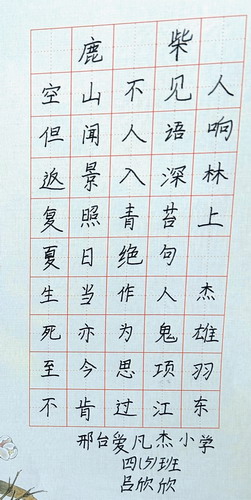 鹿柴
空山不见人
但闻人语响
返景入深林
复照青苔上
夏日绝句
生当作人杰
死亦为鬼雄
至今思项羽
不肯过江东
邢台爱凡杰小学
四(5)班
吕欣欣